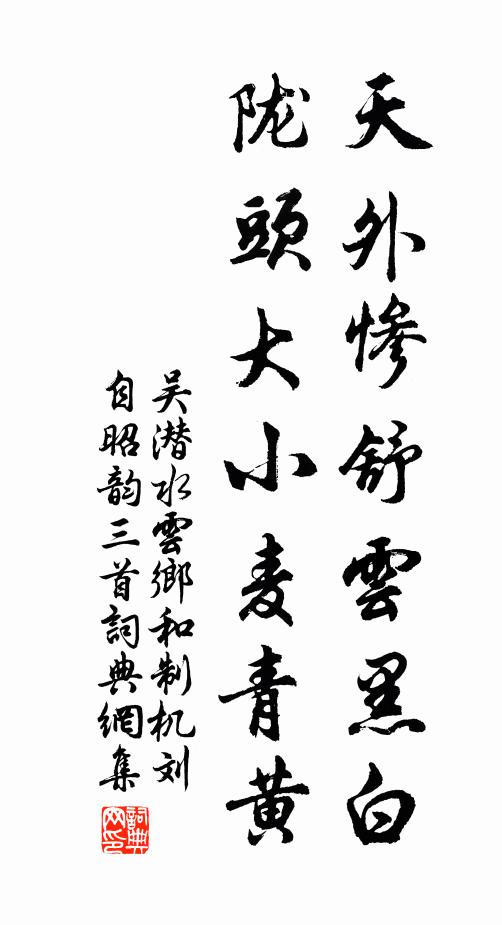 天外慘舒雲黑白
陇頭大小麦青黄
吴潜水雲鄉和制机刘
自昭韵三首詞典網集
詞典
网印